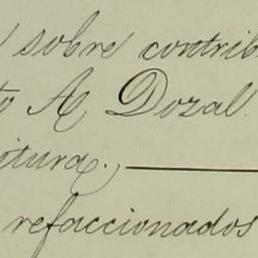 sobre contrib
to A. Dozal
itura.
refaccionados